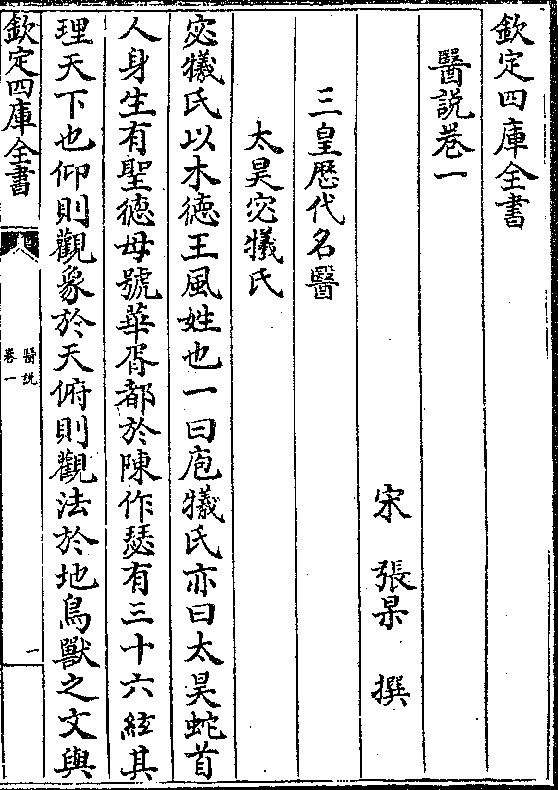 欽定四庫全書
醫説卷一
宋 張杲 撰
三皇歴代名醫
太昊宓犧氏
宓犧氏以木德王風姓也一曰庖犧氏亦曰太昊蛇首
人身生有聖德母號華胥都於陳作瑟有三十六絃其
理天下也仰則觀象於天俯則觀法於地鳥獸之文與
欽定四庫全書
醫説
卷一
一